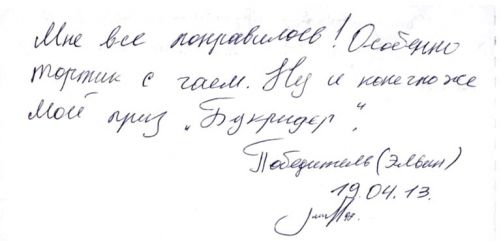 Мне все понравилось! Особенно
тортик с чаем. Ну и конечно же
мой приз „Букридер".
Победитель (Эльвин)
19.04.13.